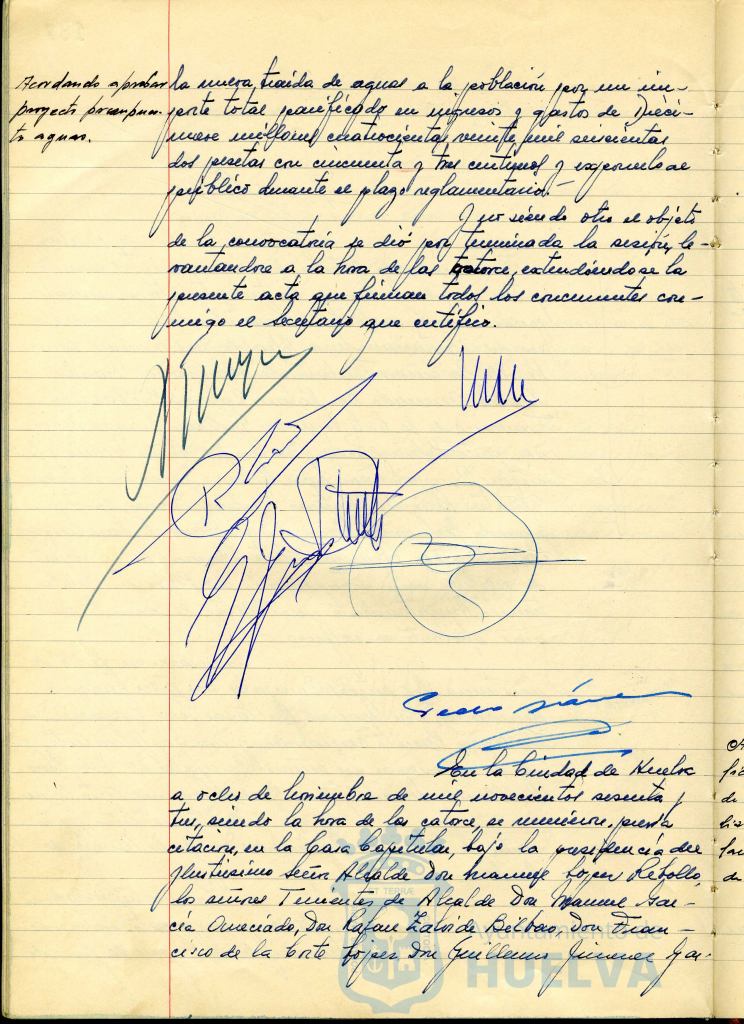 Acordando aprobar
proyecto presupues-
to aguas.
la nueva traida de aguas a la población por un im-
porte total panificado en ingresos y gastos de Dieci-
nueve millones cuatrocientas veinte mil seiscientas
dos pesetas con cincuenta y tres centimos y exponerlo al
público durante el plazo reglamentario.-
Y no siendo otro el objeto
de la convocatoria se dió por terminada la sesión, le-
vantandose a la hora de las catorce, extendiendose la
presente acta que firman todos los concurrentes con-
migo el Secretario que certifico.
En la Ciudad de Huelva
a ocho de Noviembre de mil novecientos sesenta y
tres, siendo la hora de las catorce, se reunieron, previa
citación, en la Casa Capitular, bajo la presidencia del
Ilustrisimo Señor Alcalde Don Manuel Lopez Rebollo,
los señores Tenientes de Alcalde Don Manuel Gar-
cía Don Rafael de Bilbao, Don Fran-
cisco de la Corte Lopez Don Guillermo Jimenez Gar-
Ayuntamiento de
HUELVA